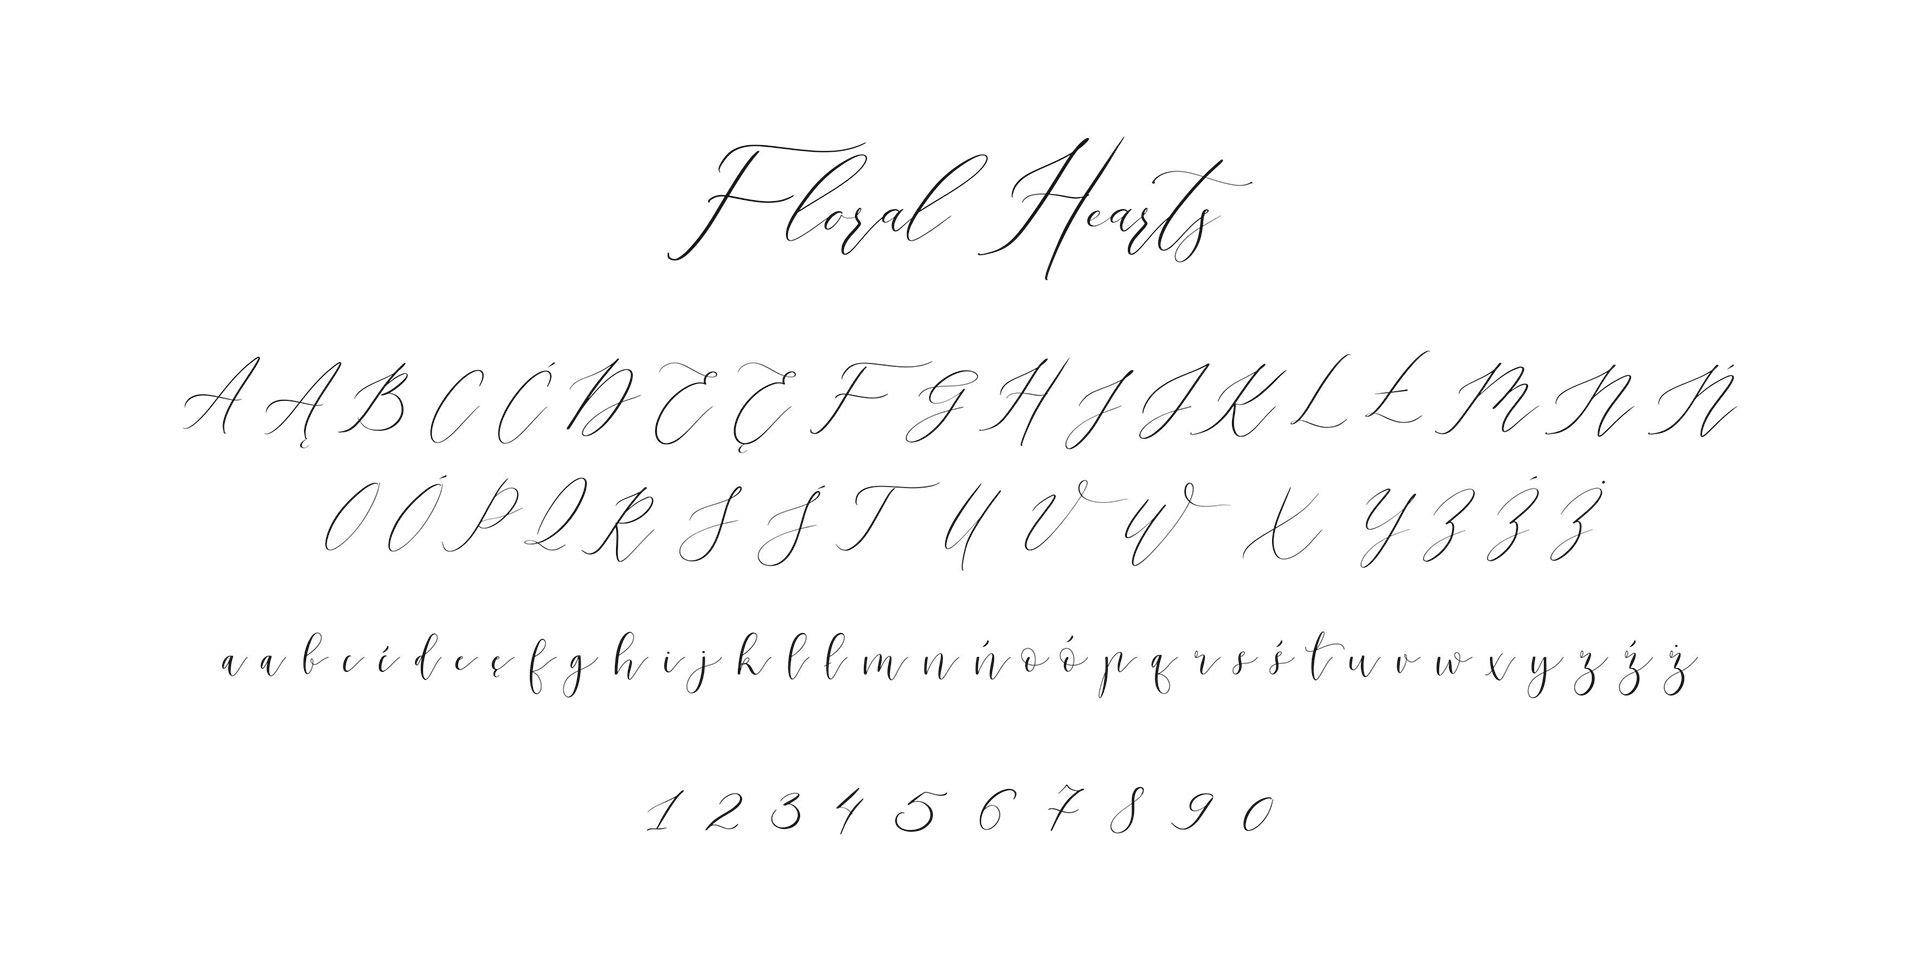 Floral Hearts
A Ą B C Ć D E Ę F G H I J K L Ł M N Ń
O Ó P Q R S Ś T U V W X Y Z Ź Ż
a a b c ć d e ę f g h i j k l ł m n ń o ó p q r s ś t u v w x y z ź ż
1 2 3 4 5 6 7 8 9 0